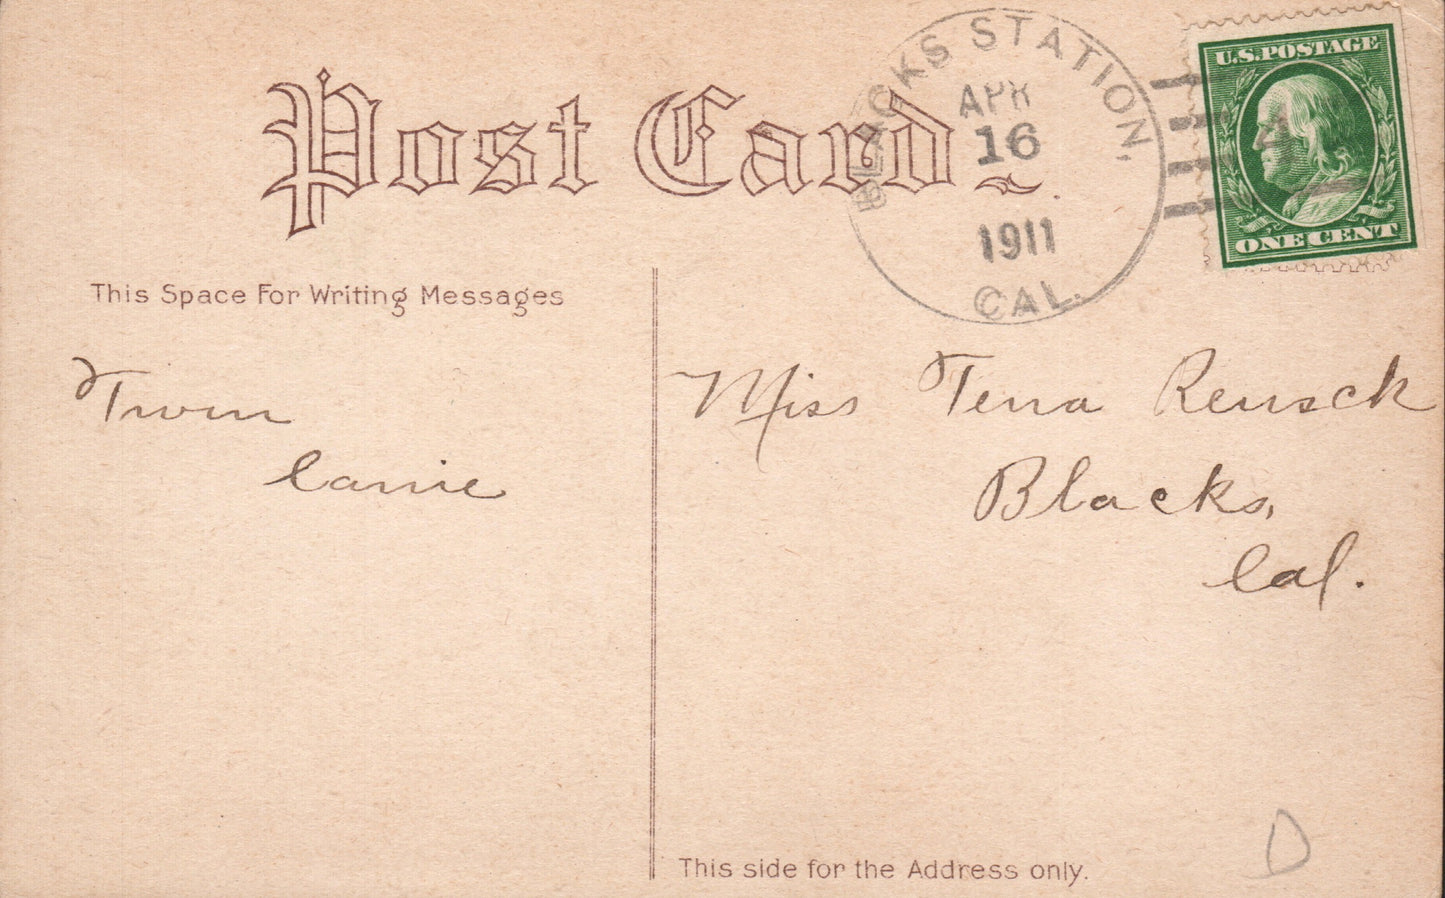 Post Card.
BLACKS STATION,
APR
16
1911
CAL.
4
U.S. POSTAGE
ONE CENT
This Space For Writing Messages
From
Carrie
Miss Tena Reusck
Blacks,
Cal.
This side for the Address only.
D